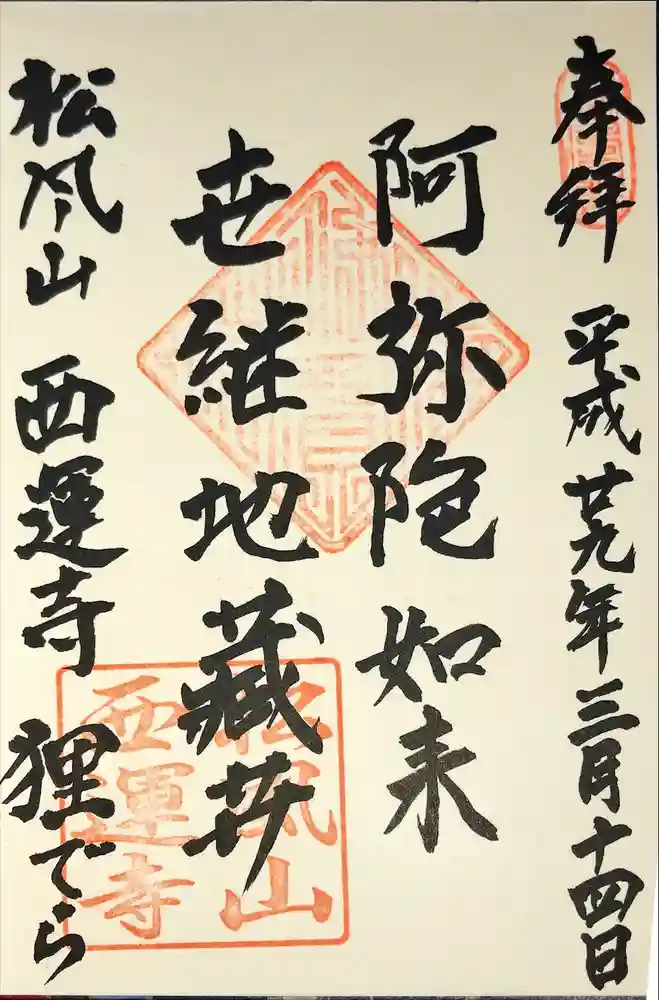 奉拝 平成廿九年三月十四日
阿弥陀如来
世継地蔵井
松風山 西運寺 狸でら
松風山
西運寺